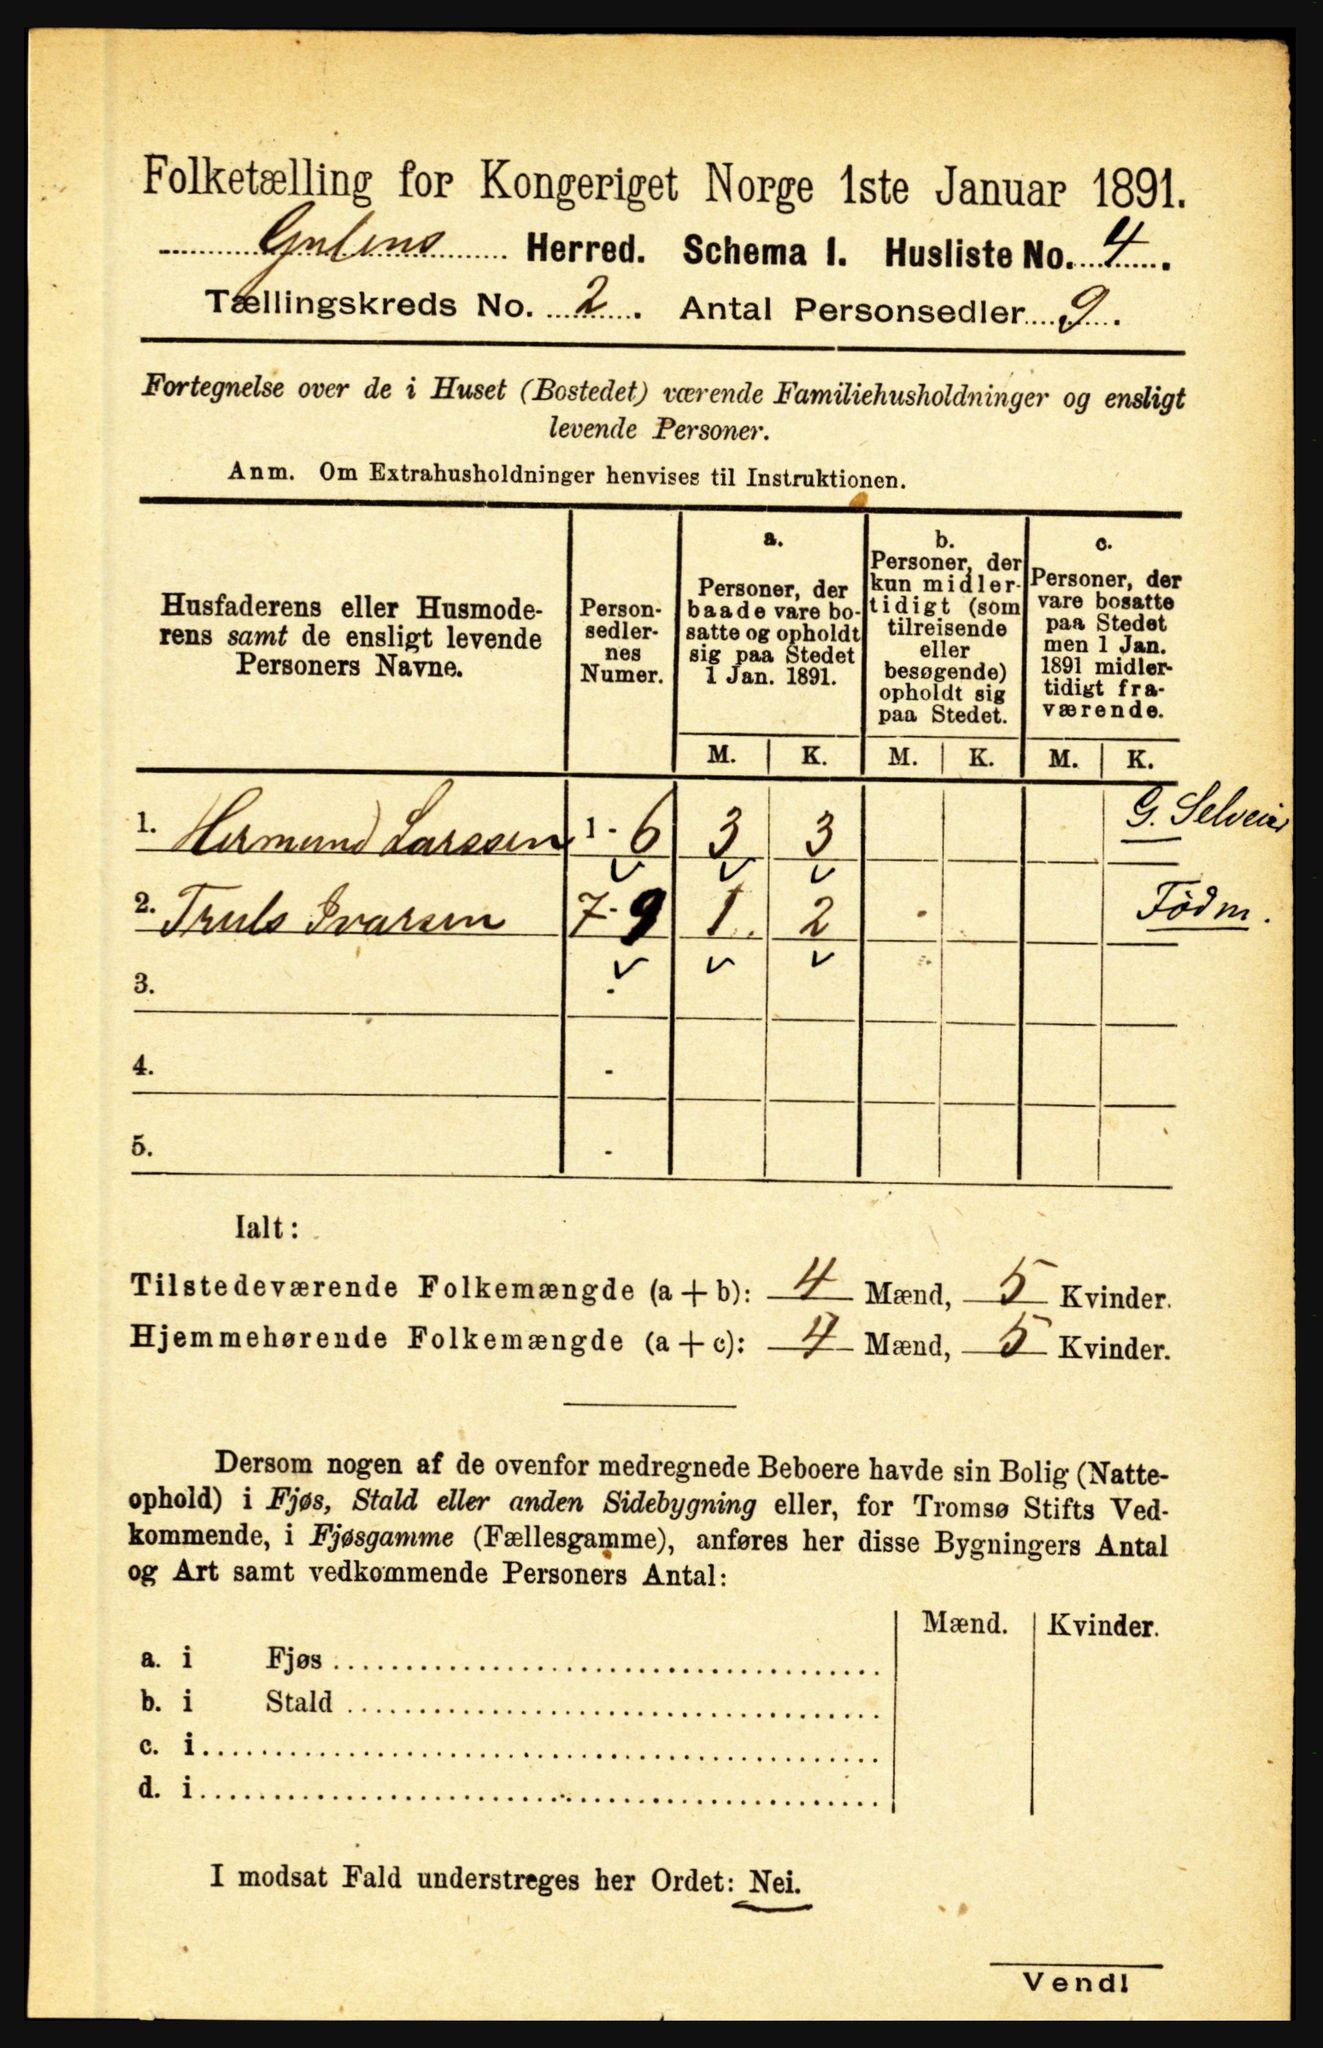 Folketælling for Kongeriget Norge 1ste Januar 1891.
Gulens Herred. Schema I. Husliste No. 4.
Tællingskreds No. 2. Antal Personsedler 9.
Fortegnelse over de i Huset (Bostedet) værende Familiehusholdninger og ensligt
levende Personer.
Anm. Om Extrahusholdninger henvises til Instruktionen.
Husfaderens eller Husmode-
rens samt de ensligt levende
Personers Navne.
Person-
sedler-
nes
Numer.
a.
Personer, der
baade vare bo-
satte og opholdt
sig paa Stedet
1 Jan. 1891.
b.
Personer, der
kun midler-
tidigt (som
tilreisende
eller
besøgende)
opholdt sig
paa Stedet.
c.
Personer, der
vare bosatte
paa Stedet
men 1 Jan.
1891 midler-
tidigt fra-
værende.
M. K. M. K. M. K.
1. Hermund Larssen 1 - 6 3 3 G. Selveier
2. Truls Ivarsen 7 - 9 1 2 Födm.
3. -
4. -
5. -
Ialt:
Tilstedeværende Folkemængde (a + b): 4 Mænd, 5 Kvinder.
Hjemmehørende Folkemængde (a + c): 4 Mænd, 5 Kvinder.
Dersom nogen af de ovenfor medregnede Beboere havde sin Bolig (Natte-
ophold) i Fjøs, Stald eller anden Sidebygning eller, for Tromsø Stifts Ved-
kommende, i Fjøsgamme (Fællesgamme), anføres her disse Bygningers Antal
og Art samt vedkommende Personers Antal:
Mænd. Kvinder.
a. i Fjøs
b. i Stald
c. i
d. i
I modsat Fald understreges her Ordet: Nei.
Vend!